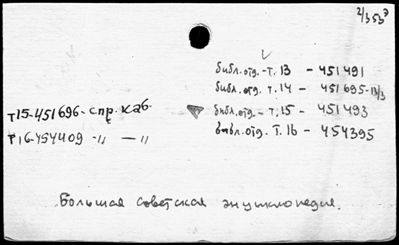 2/353э
библ.отд. - т. 13 - 451491
библ.отд. т. 14 - 451695-13/3
т15-451696-спр. каб. библ.отд. - т. 15 - 451493
т16-454409 -"- -" библ.отд. т. 16 - 454395
Большая советская энциклопедия.